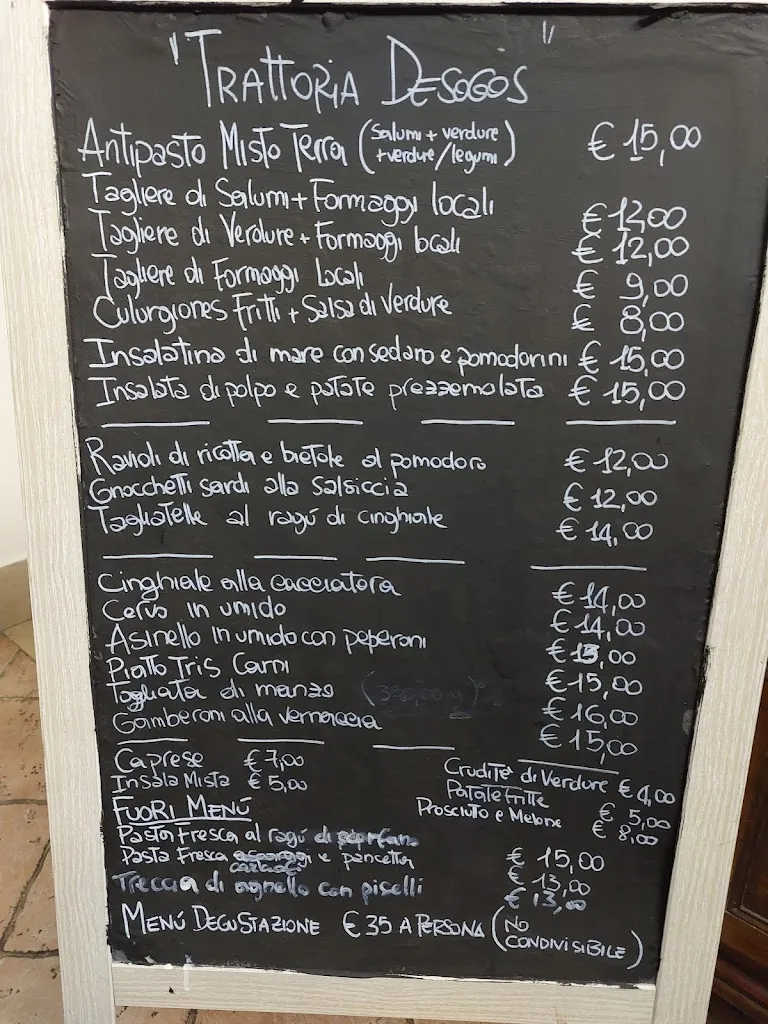 "TRATTORIA DESOGOS"
Antipasto Misto Terra (salumi + verdure + verdure/legumi) € 15,00
Tagliere di Salumi + Formaggi locali € 12,00
Tagliere di Verdure + Formaggi locali € 12,00
Tagliere di Formaggi Locali € 9,00
Culurgiones Fritti + Salsa di Verdure € 8,00
Insalatina di mare con sedano e pomodorini € 15,00
Insalata di polpo e patate prezzemolata € 15,00
Ravioli di ricotta e bietole al pomodoro € 12,00
Gnocchetti sardi alla Salsiccia € 12,00
Tagliatelle al ragú di cinghiale € 14,00
Cinghiale alla cacciatora € 14,00
Cervo in umido € 14,00
Asinello in umido con peperoni € 15,00
Piatto Tris Carni € 15,00
Tagliata di manzo € 16,00
Gamberoni alla vernaccia € 15,00
Caprese € 7,00
Insala Mista € 5,00
Crudité di Verdure € 4,00
Patate fritte € 5,00
Prosciuto e Melone € 8,00
FUORI MENÚ
Pasta fresca al ragú di € 15,00
Pasta fresca e pancetta € 13,00
Treccia di agnello con piselli € 13,00
MENÚ DEGUSTAZIONE € 35 A PERSONA (NO CONDIVISIBILE)